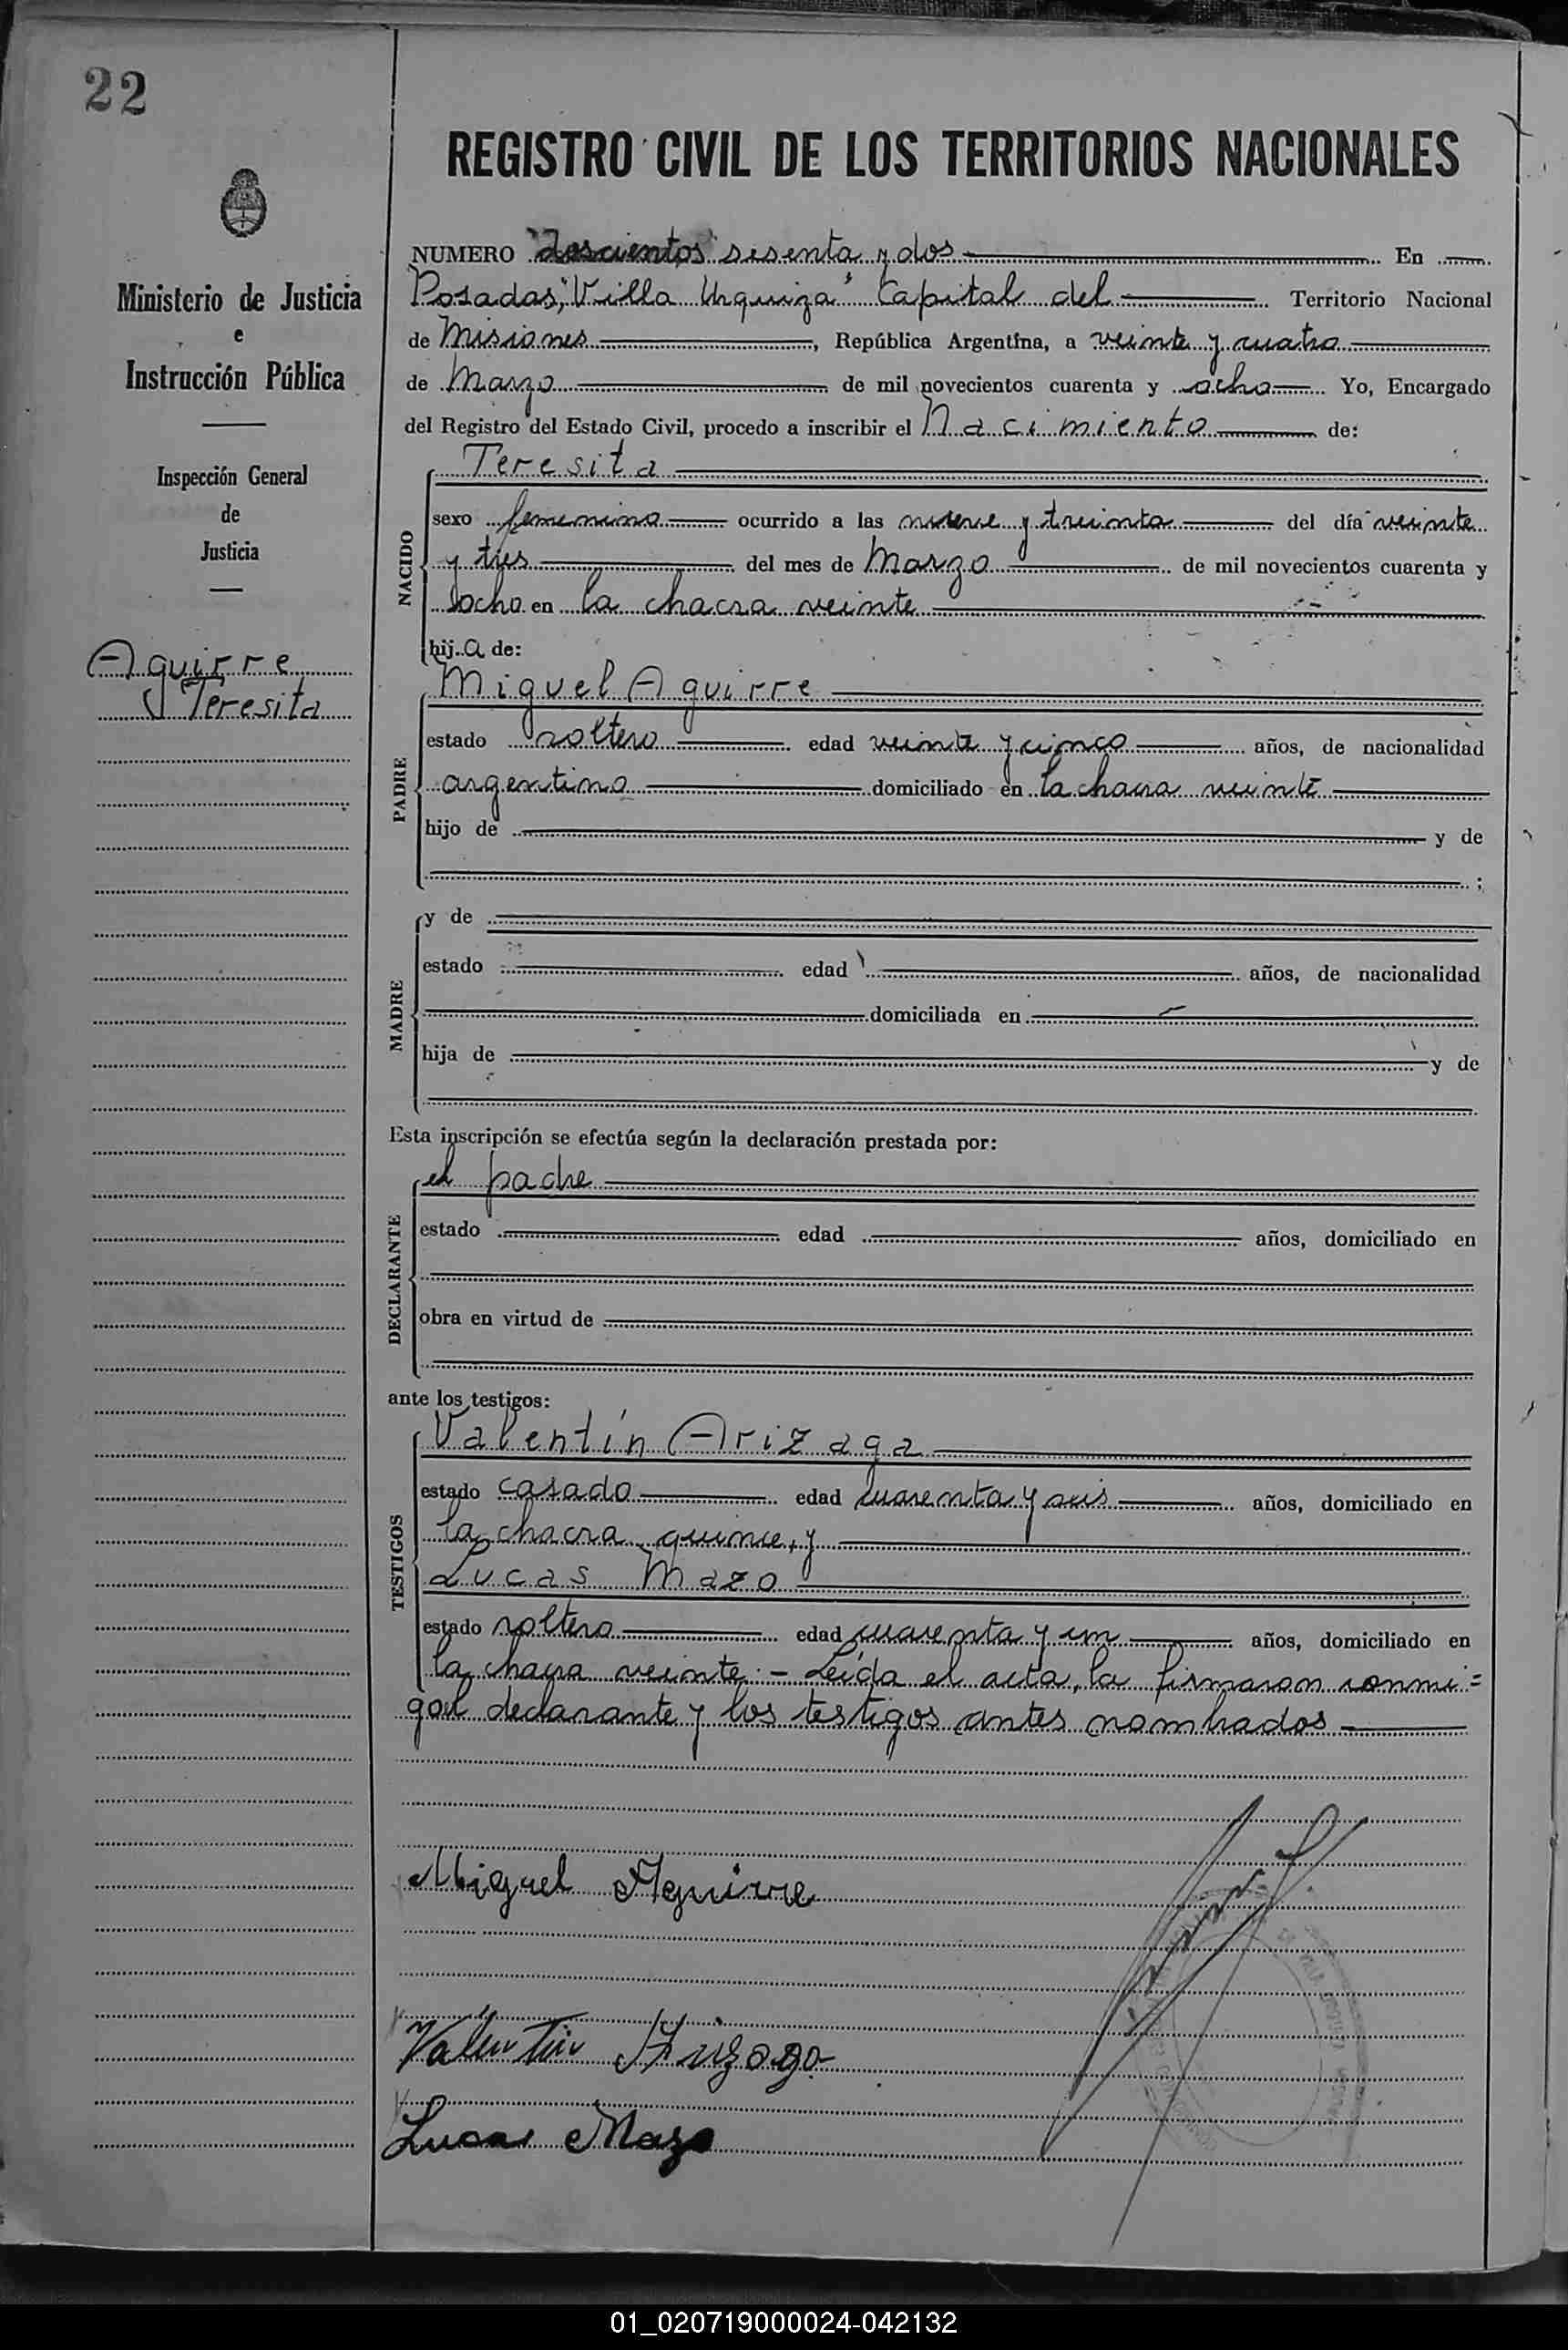 22
REGISTRO CIVIL DE LOS TERRITORIOS NACIONALES
Ministerio de Justicia
e
Instrucción Pública
Inspección General
de
Justicia
Aguirre
Teresita
NUMERO "doscientos" sesenta y dos En
Posadas, "Villa Urquiza" Capital del Territorio Nacional
de Misiones, República Argentina, a veinte y cuatro
de Marzo de mil novecientos cuarenta y ocho Yo, Encargado
del Registro del Estado Civil, procedo a inscribir el Nacimiento de:
NACIDO
Teresita
sexo femenino ocurrido a las nueve y treinta del día veinte
y tres del mes de Marzo de mil novecientos cuarenta y
ocho en la chacra veinte
hija de:
PADRE
Miguel Aguirre
estado soltero edad veinte y cinco años, de nacionalidad
argentino domiciliado en la chacra veinte
hijo de y de
;
MADRE
y de
estado edad años, de nacionalidad
domiciliada en
hija de y de
Esta inscripción se efectúa según la declaración prestada por:
DECLARANTE
el padre
estado edad años, domiciliado en
obra en virtud de
ante los testigos:
TESTIGOS
Valentín Arizaga
estado casado edad cuarenta y seis años, domiciliado en
la chacra quince, y
Lucas Mazo
estado soltero edad cuarenta y un años, domiciliado en
la chacra veinte.- Leída el acta, la firmaron conmi=
go el declarante y los testigos antes nombrados
Miguel Aguirre
Valentin Arizaga
Lucas Mazo
01_020719000024-042132